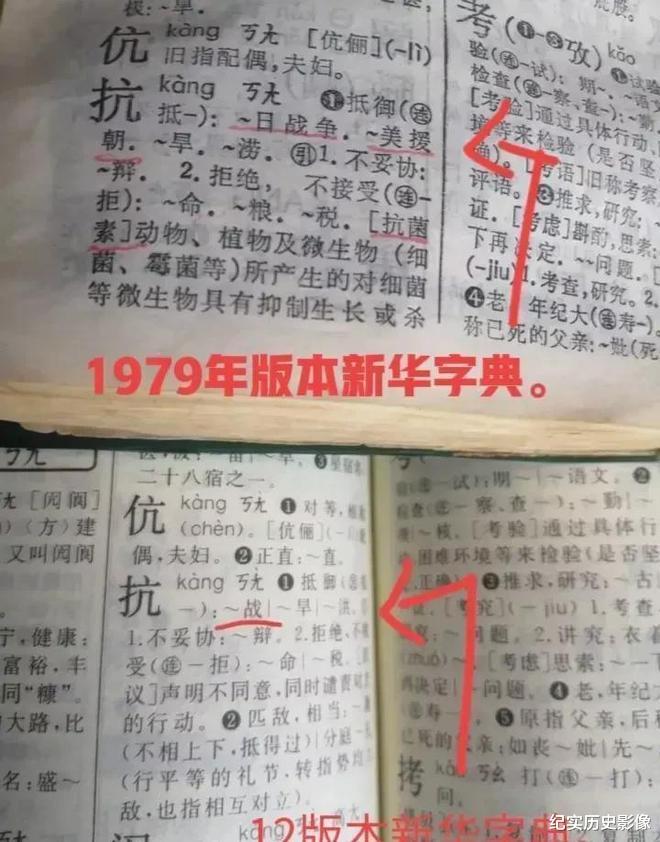 极：~旱．
伉 kàng ㄎㄤ [伉俪](-lì)
旧指配偶，夫妇。
抗 kàng ㄎㄤ ❶抵御(㊤
抵一)：~日战争．~美援
朝．~旱．~涝．㊋1．不妥协：
~辩．2．拒绝，不接受(㊤一
拒)：~命．~粮．~税．[抗菌
素]动物、植物及微生物（细
菌、霉菌等）所产生的对细菌
等微生物具有抑制生长或杀
考(❶-❸攷) kǎo
验(㊤-试)：期-．~语文
检查(㊤-察、查-)：~勤
[考验]通过具体行动、
境等来检验（是否坚
确)。[考语]旧称考察
评语。❸推求，研究：
证．[考虑]斟酌，思索：
下再决定．~~问题．
(-jiu)1．考查，研究。2．
❹老，年纪大(㊤寿-)．
称已死的父亲：~妣(死
1979年版本新华字典。
ㄎㄤ
ㄤ [闶阆]
(方) 建
又叫闶阆
宁，健康：
富裕，丰
同“糠”。
大路，比
名：盛~
二十八宿之一。
伉 kàng ㄎㄤ ❶对等，
(chèn)。[伉俪](-
偶，夫妇。❷正直：~直。
抗 kàng ㄎㄤ ❶抵御(
一)：~战|~旱|~洪
1.不妥协：~辩。2.拒绝、不
受(㊤一拒)：~命|~税。
议]声明不同意，同时谴责
的行动。❷匹敌，相当：
(不相上下，抵得过)|分庭
(行平等的礼节，转指势均
敌，也指相互对立)。
kàng ㄎㄤ
一试)：期~|~语文。❷
一察、查一)：~勤|
~核。[考验]通过具体行
困难环境等来检验(是否坚
正确)。❸推求，研究：~古
[考究](－jiu) 1.考查
问题。2.讲究：衣着
(zhuó)~。[考虑]思索：~一
再决定|~问题。❹老，年纪大
寿一)。❺原指父亲，后
已死的父亲：如丧~妣|先~
拷 kǎo ㄎㄠ 打(㊤一打)：
问。
12版本新华字典。
纪实历史影像